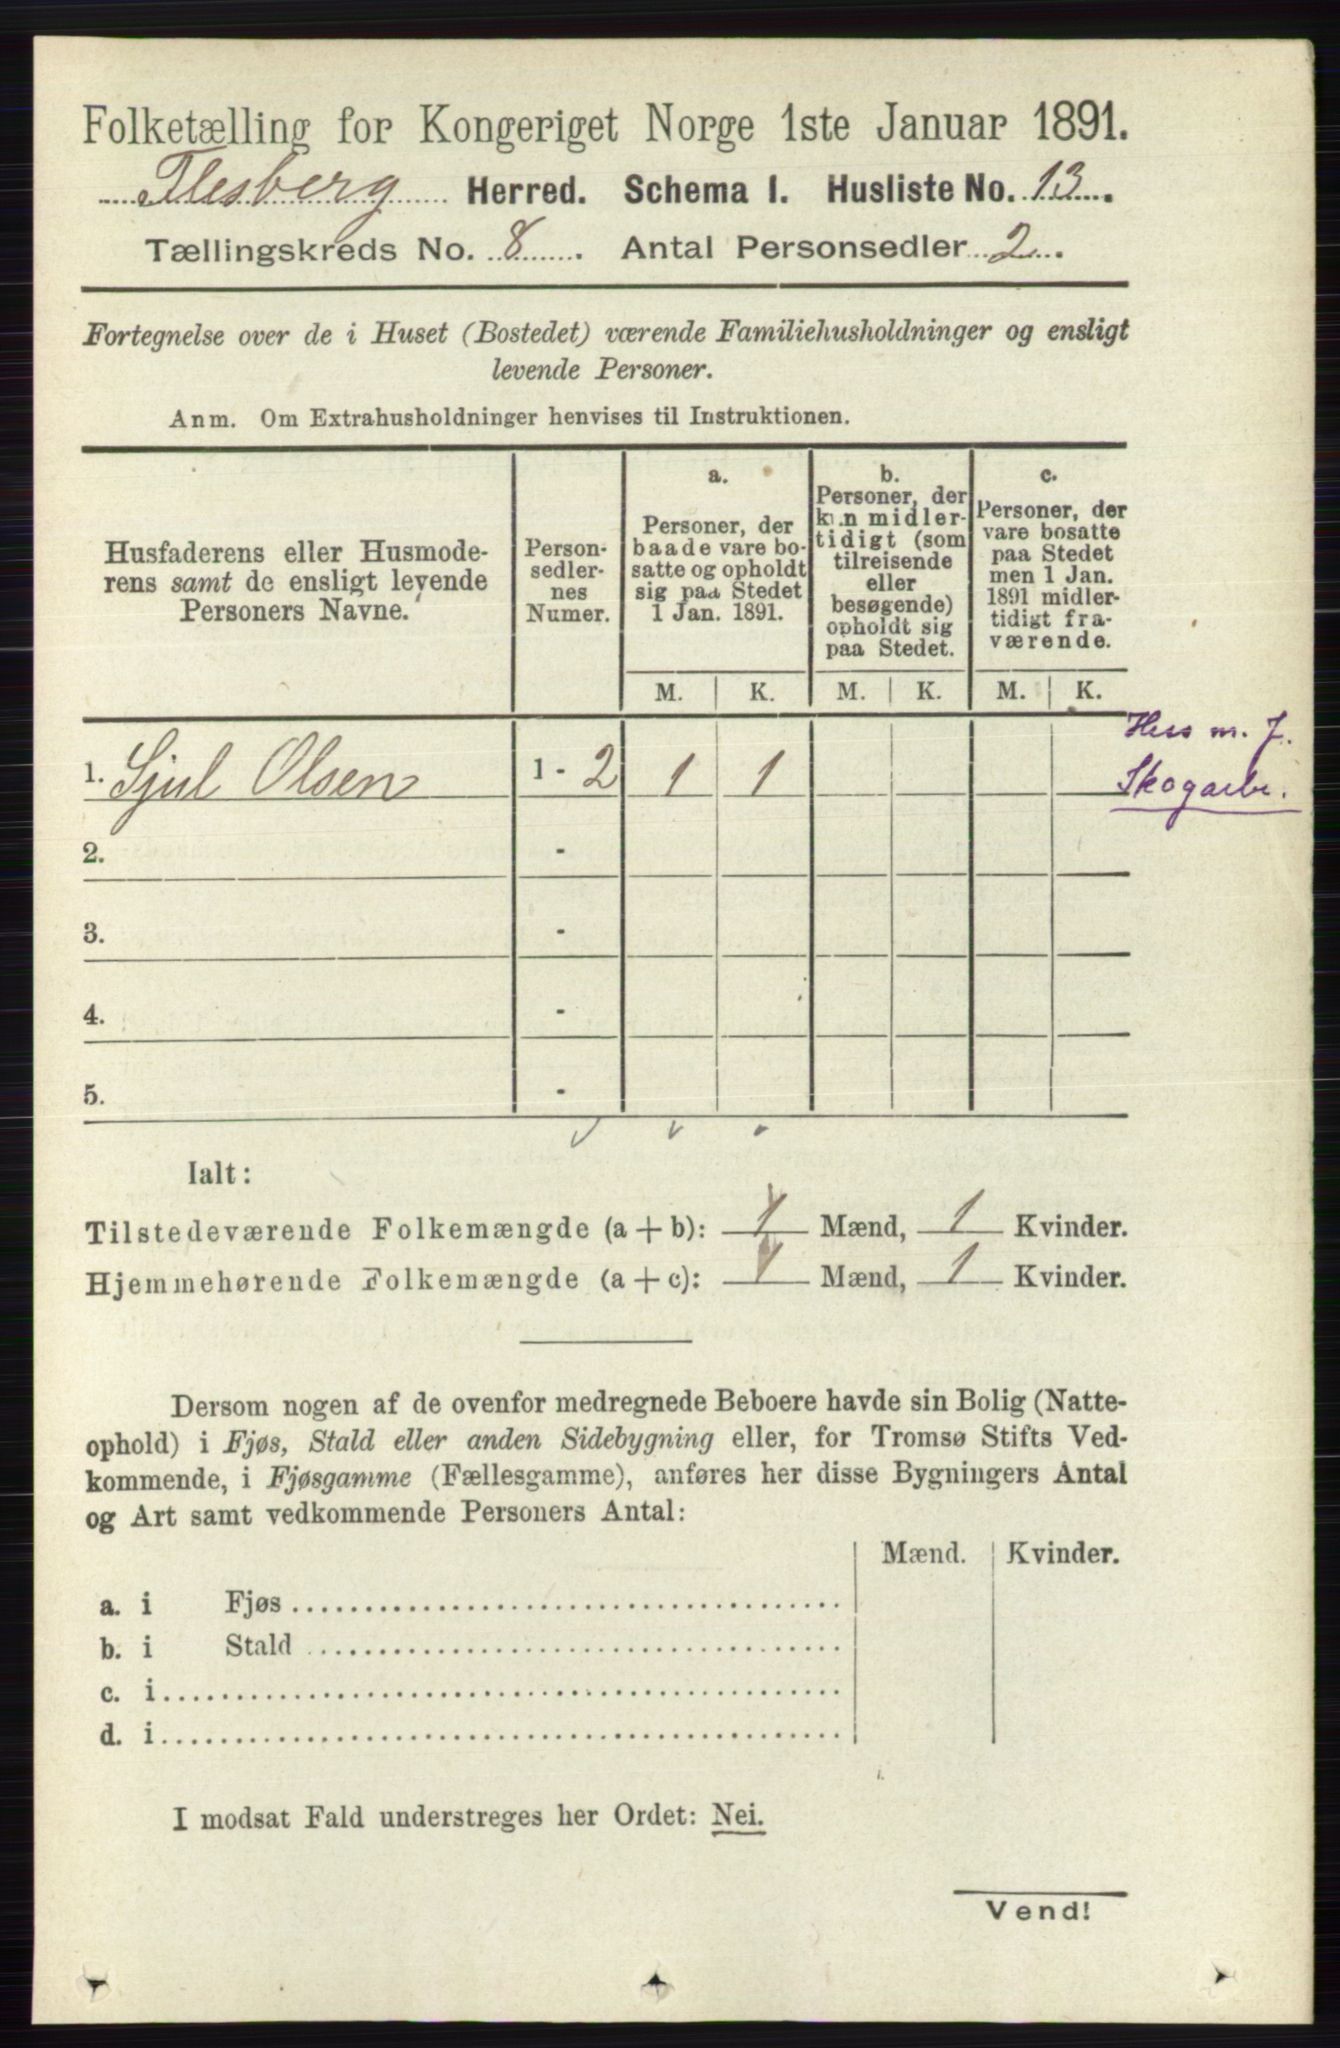 Folketælling for Kongeriget Norge 1ste Januar 1891.
Flesberg Herred. Schema I. Husliste No. 13.
Tællingskreds No. 8. Antal Personsedler 2.
Fortegnelse over de i Huset (Bostedet) værende Familiehusholdninger og ensligt
levende Personer.
Anm. Om Extrahusholdninger henvises til Instruktionen.
Husfaderens eller Husmode-
rens samt de ensligt levende
Personers Navne.
Person-
sedler-
nes
Numer.
a.
Personer, der
baade vare bo-
satte og opholdt
sig paa Stedet
1 Jan. 1891.
b.
Personer, der
kun midler-
tidigt (som
tilreisende
eller
besøgende)
opholdt sig
paa Stedet.
c.
Personer, der
vare bosatte
paa Stedet
men 1 Jan.
1891 midler-
tidigt fra-
værende.
M. K. M. K. M. K.
Hus m. J.
1. Sjul Olsen 1 - 2 1 1
Skogarbr.
2. -
3. -
4. -
5. -
Ialt:
Tilstedeværende Folkemængde (a + b): 1 Mænd, 1 Kvinder.
Hjemmehørende Folkemængde (a + c): 1 Mænd, 1 Kvinder.
Dersom nogen af de ovenfor medregnede Beboere havde sin Bolig (Natte-
ophold) i Fjøs, Stald eller anden Sidebygning eller, for Tromsø Stifts Ved-
kommende, i Fjøsgamme (Fællesgamme), anføres her disse Bygningers Antal
og Art samt vedkommende Personers Antal:
Mænd. Kvinder.
a. i Fjøs
b. i Stald
c. i
d. i
I modsat Fald understreges her Ordet: Nei.
Vend!